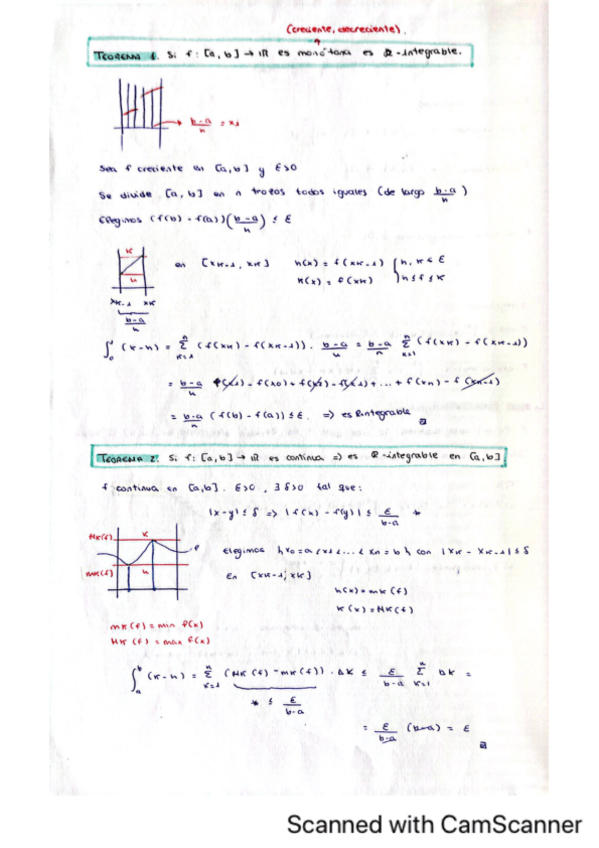 (creciente, decreciente).
TEOREMA 1. Si f: [a, b] → IR es monótona es R-integrable.
b-a/n = x1
Sea f creciente en [a, b] y ε>0
Se divide [a, b] en n trozos todos iguales (de largo b-a/n)
Elegimos (f(b) - f(a)) (b-a/n) ≤ ε
K
h
en [xk-1, xk] h(x) = f(xk-1) } h, k ∈ E
K(x) = f(xk) } h ≤ f ≤ k
xk-1 xk
b-a/n
∫ (k-h) = Σ (f(xk) - f(xk-1)) · b-a/n = b-a/n Σ (f(xk) - f(xk-1))
k=1 n
= b-a/n f(x1) - f(x0) + f(x2) - f(x1) + ... + f(xn) - f(xn-1)
= b-a/n (f(b) - f(a)) ≤ ε. => es Rintegrable
TEOREMA 2. Si f: [a, b] → IR es continua => es R-integrable en [a, b]
f continua en [a, b]. ε>0, ∃ δ>0 tal que:
|x-y| ≤ δ => |f(x) - f(y)| ≤ ε/b-a *
Mk(f) K f
mk(f) h
Elegimos {x0=a<x1<...<xn=b} con |xk - xk-1| ≤ δ
En [xk-1, xk]
h(x) = mk(f)
K(x) = Mk(f)
mk(f) = min f(x)
Mk(f) = max f(x)
∫ a b (k-h) = Σ k=1 n (Mk(f) - mk(f)) · Δk ≤ ε/b-a Σ k=1 n Δk =
* ≤ ε/b-a
= ε/b-a (b-a) = ε
Scanned with CamScanner